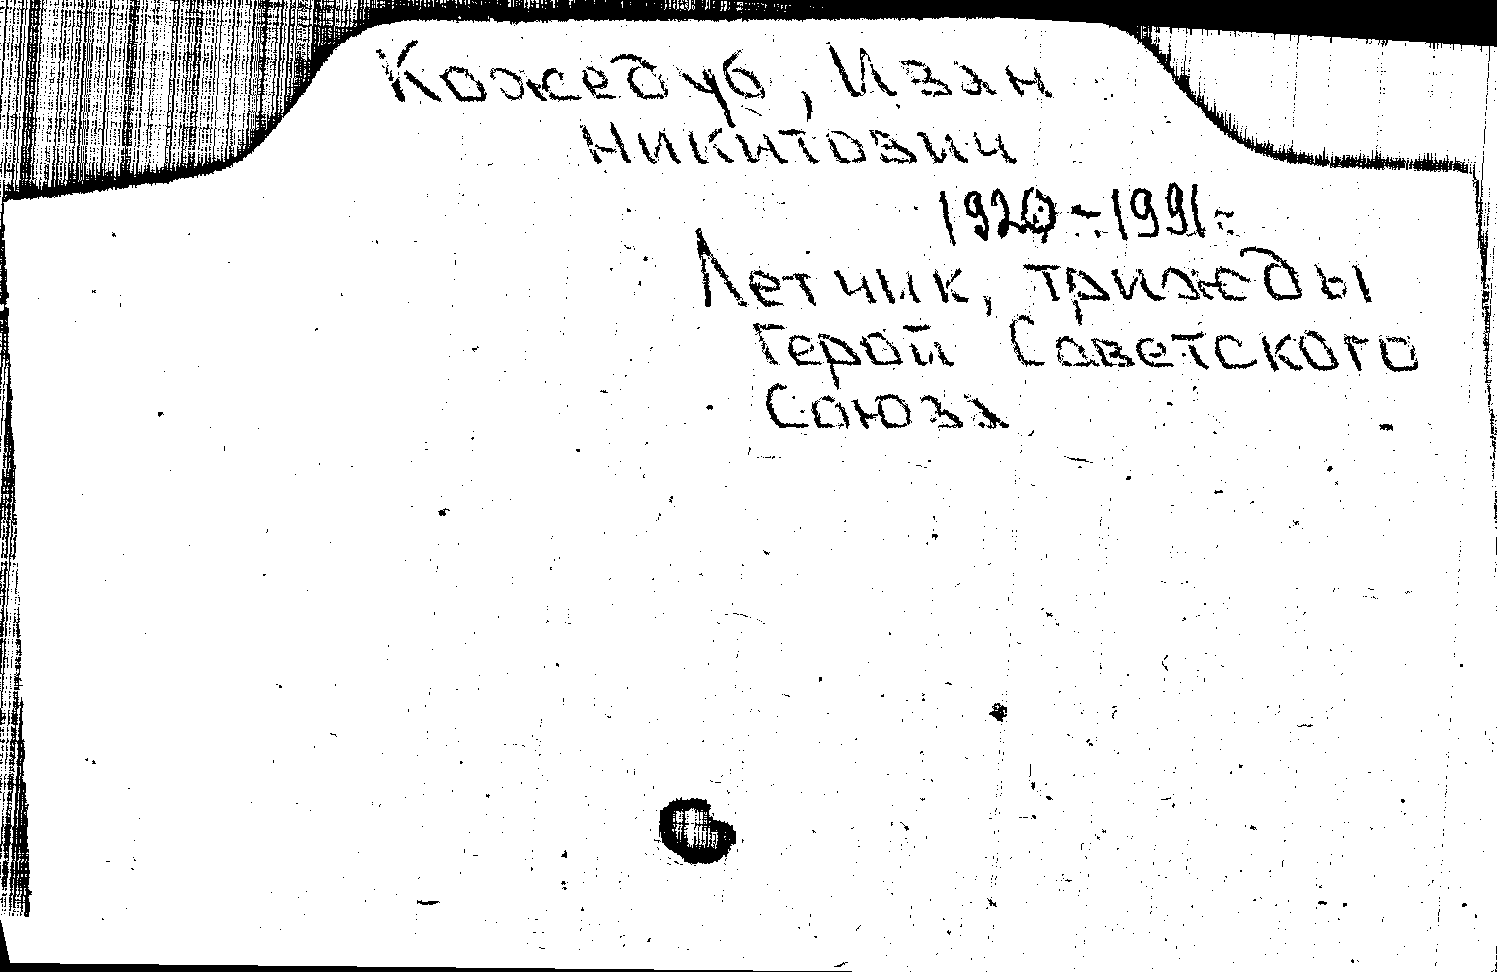 Кожедуб, Иван
Никитович
1920-1991.
Летчик, трижды
герой Советского
Союза